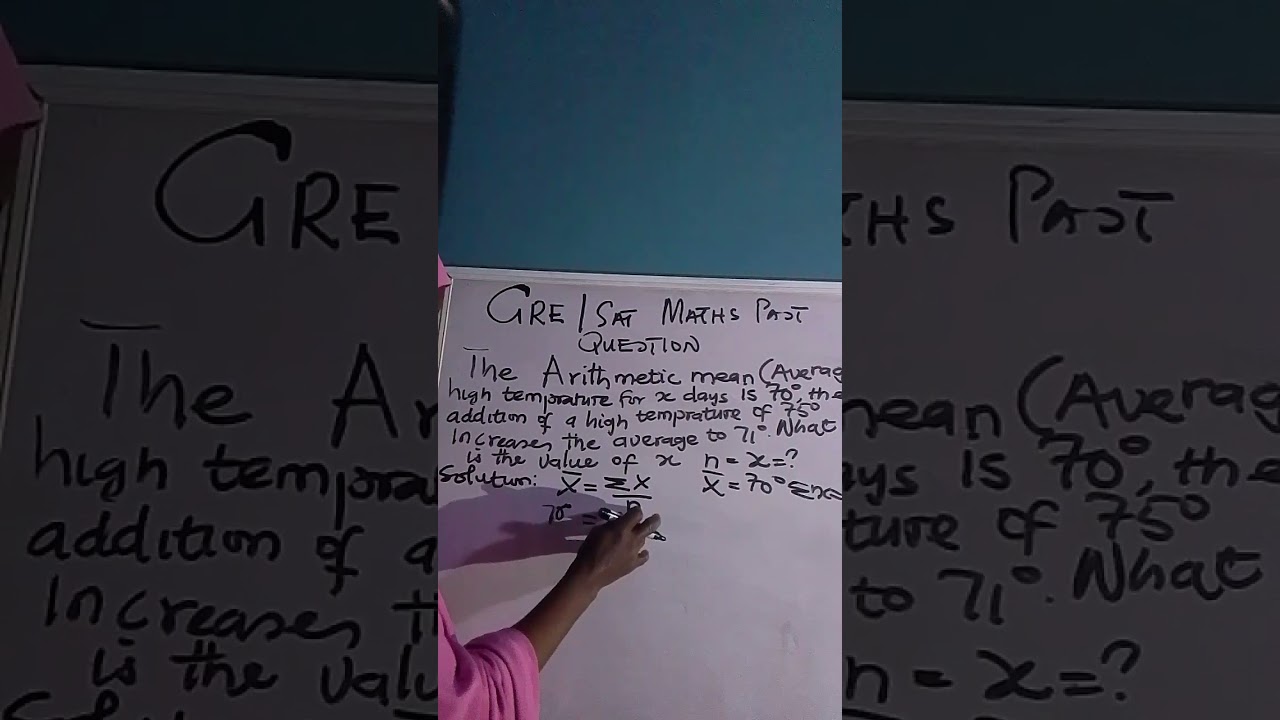 GRE | SAT MATHS PAST
QUESTION
The Arithmetic mean (Averag
high temprature for x days is 70°, the
addition of a high temprature of 75°
Increases the average to 71°. What
is the value of x n = x = ?
Solution: X̅ = ΣX X̅ = 70° Σx=
n
70 =